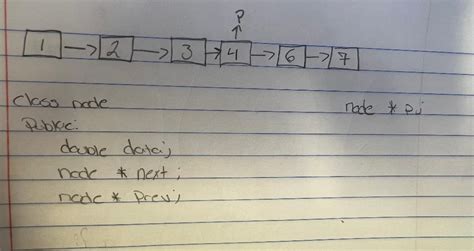 P
1 → 2 → 3 → 4 → 6 → 7
class node node * p;
Public:
double data;
node * next;
node * prev;